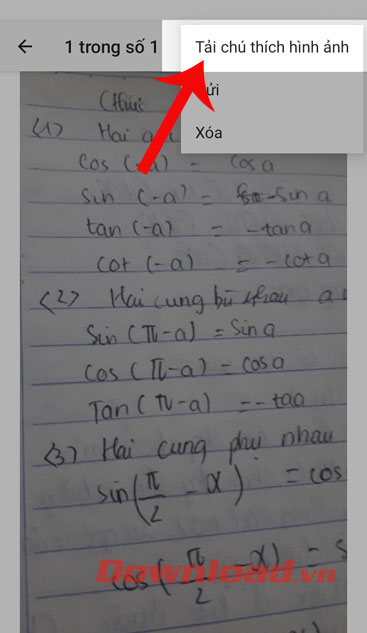 1 trong số 1
Tải chú thích hình ảnh
Xóa
(1) Hai
cos (-a) = cos a
sin (-a) = -sin a
tan (-a) = -tan a
cot (-a) = -cot a
(2) Hai cung bù nhau a
Sin (π-a) = Sin a
cos (π-a) = cos a
Tan (π-a) = -tan
(3) Hai cung phụ nhau
sin(π/2 - α) = cos
cos(π/2 - α) = s
Download.vn